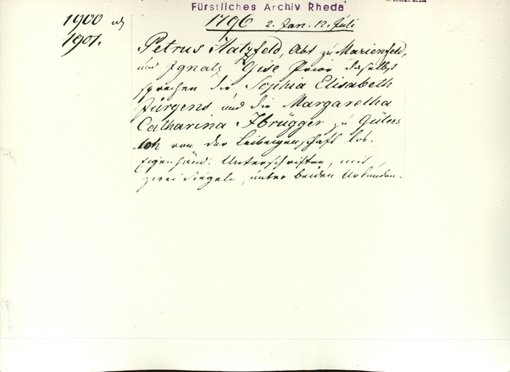 Fürstliches Archiv Rheda
1900 u
1901.
1796 2. Jan. 12. Juli
Petrus Hatzfeld, Abt zu Marienfeld,
und Ignatz Gise Prior daselbst
sprechen die Sophia Elisabeth
Jürgens und die Margaretha
Catharina Hbrügger zu Güters-
loh von der Leibeigenschaft los.
Eigenhänd. Unterschriften, mit
zwei Siegeln, unter beiden Urkunden.